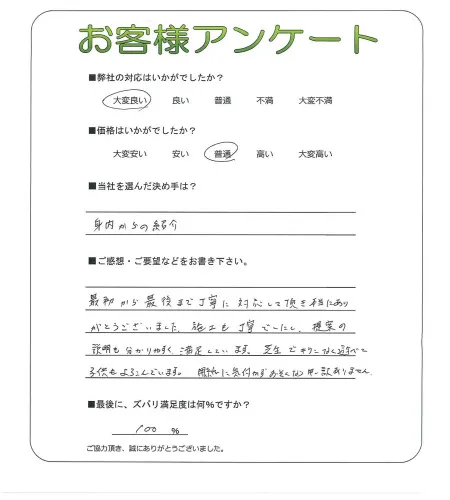 お客様アンケート
■弊社の対応はいかがでしたか？
大変良い 良い 普通 不満 大変不満
■価格はいかがでしたか？
大変安い 安い 普通 高い 大変高い
■当社を選んだ決め手は？
身内からの紹介
■ご感想・ご要望などをお書き下さい。
最初から最後まで丁寧に対応して頂き本当にあり
がとうございました。施工も丁寧でしたし、提案の
説明も分かりやすく満足しています。芝生で
子供もよろこんでいます。 に気付かずおそくなり申し訳ありません。
■最後に、ズバリ満足度は何％ですか？
100 %
ご協力頂き、誠にありがとうございました。